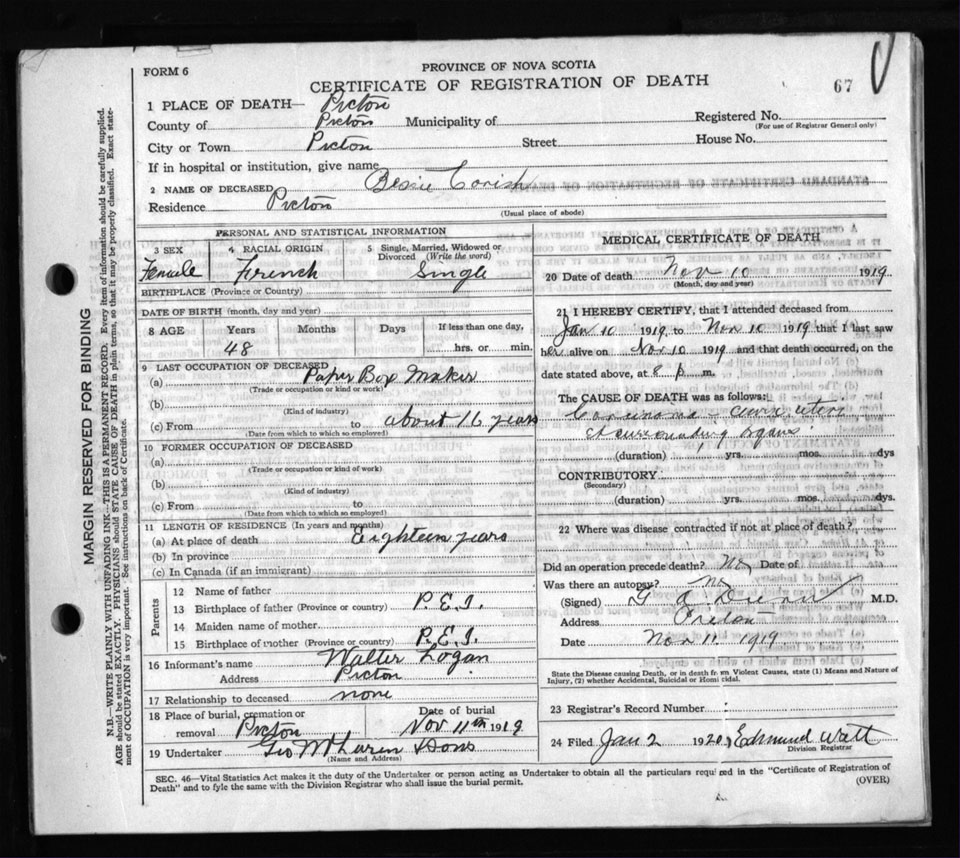 FORM 6
PROVINCE OF NOVA SCOTIA
CERTIFICATE OF REGISTRATION OF DEATH
67
1 PLACE OF DEATH— Pictou
County of Pictou Municipality of
Registered No.
(For use of Registrar General only)
City or Town Pictou Street House No.
If in hospital or institution, give name
2 NAME OF DECEASED Bessie Corish
Residence Pictou
(Usual place of abode)
PERSONAL AND STATISTICAL INFORMATION
3 SEX 4 RACIAL ORIGIN 5 Single, Married, Widowed or
Divorced (Write the word)
Female French Single
BIRTHPLACE (Province or Country)
DATE OF BIRTH (month, day and year)
8 AGE Years Months Days If less than one day,
48 hrs. or min.
9 LAST OCCUPATION OF DECEASED
(a) Paper Box Maker
(Trade or occupation or kind of work)
(b)
(Kind of industry)
(c) From to about 16 years
(Date from which to which so employed)
10 FORMER OCCUPATION OF DECEASED
(a)
(Trade or occupation or kind of work)
(b)
(Kind of industry)
(c) From to
(Date from which to which so employed)
11 LENGTH OF RESIDENCE (In years and months)
(a) At place of death Eighteen years
(b) In province
(c) In Canada (if an immigrant)
Parents
12 Name of father
13 Birthplace of father (Province or country) P.E.I.
14 Maiden name of mother
15 Birthplace of mother (Province or country) P.E.I.
16 Informant's name Walter Logan
Address Pictou
17 Relationship to deceased none
18 Place of burial, cremation or
removal Pictou
Date of burial
Nov 11th 1919
19 Undertaker Geo & Sons
(Name and Address)
MEDICAL CERTIFICATE OF DEATH
20 Date of death Nov 10 1919
(Month, day and year)
21 I HEREBY CERTIFY, that I attended deceased from
Jan 10 1919 to Nov 10 1919 that I last saw
her alive on Nov 10 1919 and that death occurred, on
date stated above, at 8 p m.
The CAUSE OF DEATH was as follows:
Carcinoma uteri
& surrounding organs
(duration) yrs. mos. dys
CONTRIBUTORY
(Secondary)
(duration) yrs. mos. dys.
22 Where was disease contracted if not at place of death?
Did an operation precede death? No Date of
Was there an autopsy? No
(Signed) G A M.D.
Address Pictou
Date Nov 11 1919
State the Disease causing Death, or in death from Violent Causes, state (1) Means and Nature of
Injury, (2) whether Accidental, Suicidal or Homicidal.
23 Registrar's Record Number
24 Filed Jan 2 1920 Edmund Watt
Division Registrar
SEC. 46—Vital Statistics Act makes it the duty of the Undertaker or person acting as Undertaker to obtain all the particulars required in the "Certificate of Registration of
Death" and to fyle the same with the Division Registrar who shall issue the burial permit.
(OVER)
MARGIN RESERVED FOR BINDING
N.B.—WRITE PLAINLY WITH UNFADING INK—THIS IS A PERMANENT RECORD. Every item of information should be carefully supplied.
AGE should be stated EXACTLY. PHYSICIANS should STATE CAUSE OF DEATH in plain terms, so that it may be properly classified. Exact state-
ment of OCCUPATION is very important. See instructions on back of Certificate.